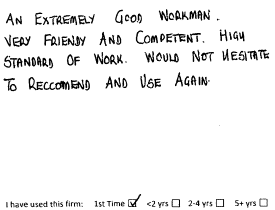 AN EXTREMELY GOOD WORKMAN.
VERY FRIENDY AND COMPETENT. HIGH
STANDARD OF WORK. WOULD NOT HESITATE
TO RECCOMEND AND USE AGAIN.
I have used this firm: 1st Time ☑ <2 yrs ☐ 2-4 yrs ☐ 5+ yrs ☐